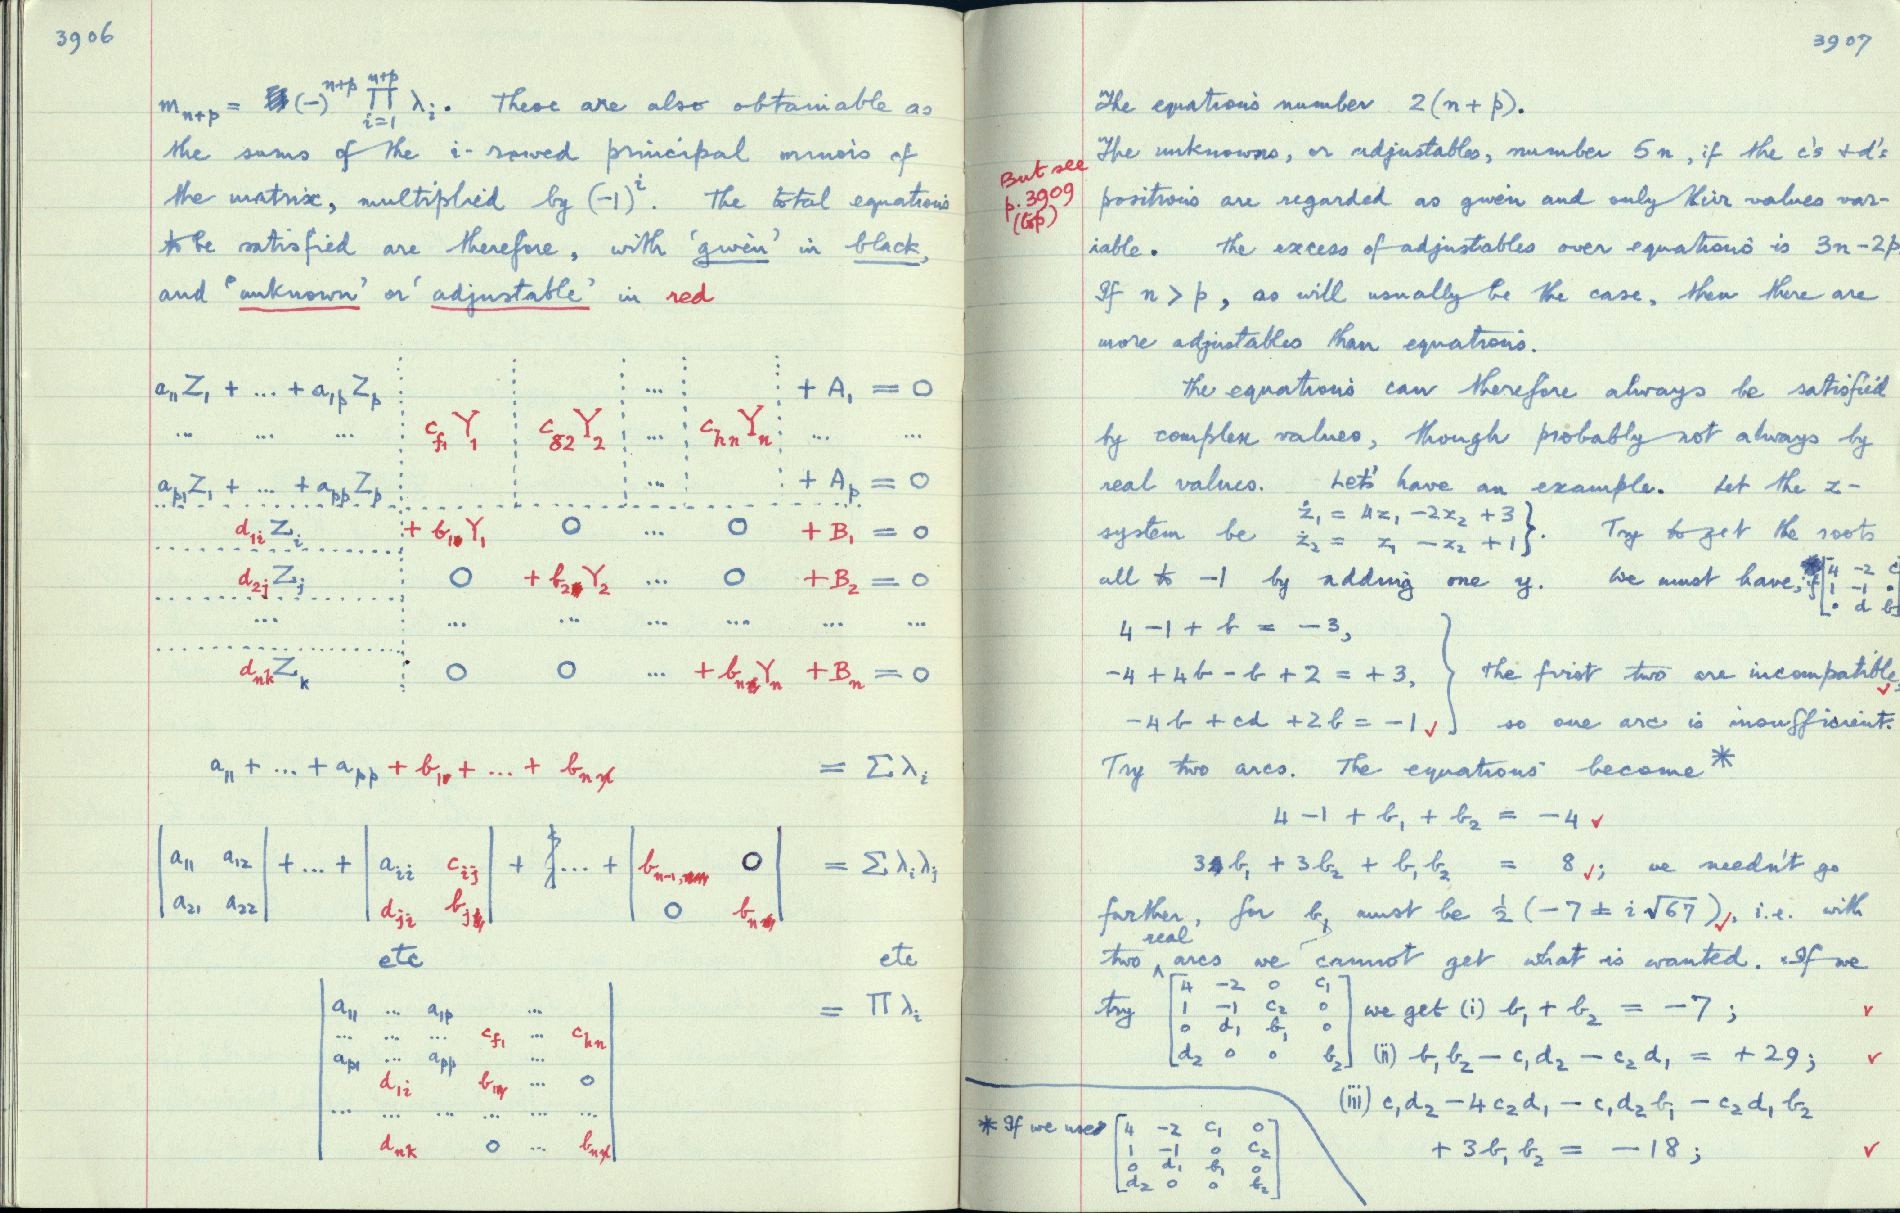 3906
m_{n+p} = (-)^{n+p} ∏_{i=1}^{n+p} λ_i. These are also obtainable as
the sums of the i-rowed principal minors of
the matrix, multiplied by (-1)^i. The total equations
to be satisfied are therefore, with 'given' in black,
and 'unknown' or 'adjustable' in red
a_{11}Z_1 + ... + a_{1p}Z_p ... + A_1 = 0
... ... ... c_{f1}Y_1 c_{g2}Y_2 ... c_{hn}Y_n ... ...
a_{p1}Z_1 + ... + a_{pp}Z_p ... + A_p = 0
d_{1i}Z_i + b_1Y_1 0 ... 0 + B_1 = 0
d_{2j}Z_j 0 + b_2Y_2 ... 0 + B_2 = 0
... ... ... ... ... ... ...
d_{nk}Z_k 0 0 ... + b_nY_n + B_n = 0
a_{11} + ... + a_{pp} + b_1 + ... + b_n = Σλ_i
| a_{11} a_{12} | + ... + | a_{ii} c_{ij} | + ... + | b_{n-1} 0 | = Σλ_iλ_j
| a_{21} a_{22} | | d_{ji} b_j | | 0 b_n |
etc etc
a_{11} ... a_{1p} ... = Πλ_i
... ... ... c_{f1} ... c_{hn}
a_{p1} ... a_{pp}
d_{1i} b_1 ... 0
... ... ... ... ... ...
d_{nk} 0 ... b_n
3907
The equations number 2(n + p).
The unknowns, or adjustables, number 5n, if the c's + d's
But see
p. 3909
(top)
positions are regarded as given and only their values var-
iable. The excess of adjustables over equations is 3n - 2p.
If n > p, as will usually be the case, then there are
more adjustables than equations.
The equations can therefore always be satisfied
by complex values, though probably not always by
real values. Let's have an example. Let the z-
system be ż_1 = 4z_1 - 2z_2 + 3
ż_2 = z_1 - z_2 + 1 }. Try to get the roots
all to -1 by adding one y. We must have, if [4 -2 c
1 -1 ·
· d b]
4 - 1 + b = -3,
-4 + 4b - b + 2 = +3, } The first two are incompatible,
-4b + cd + 2b = -1 ✓ so one arc is insufficient.
Try two arcs. The equations become *
4 - 1 + b_1 + b_2 = -4 ✓
3b_1 + 3b_2 + b_1b_2 = 8 ✓; we needn't go
further, for b_1 must be ½(-7 ± i√67) ✓, i.e. with
two ^real arcs we cannot get what is wanted. If we
try [4 -2 0 c_1
1 -1 c_2 0
0 d_1 b_1 0
d_2 0 0 b_2] we get (i) b_1 + b_2 = -7; ✓
(ii) b_1b_2 - c_1d_2 - c_2d_1 = +29; ✓
(iii) c_1d_2 - 4c_2d_1 - c_1d_2b_1 - c_2d_1b_2
+ 3b_1b_2 = -18; ✓
* If we used [4 -2 c_1 0
1 -1 0 c_2
0 d_1 b_1 0
d_2 0 0 b_2]